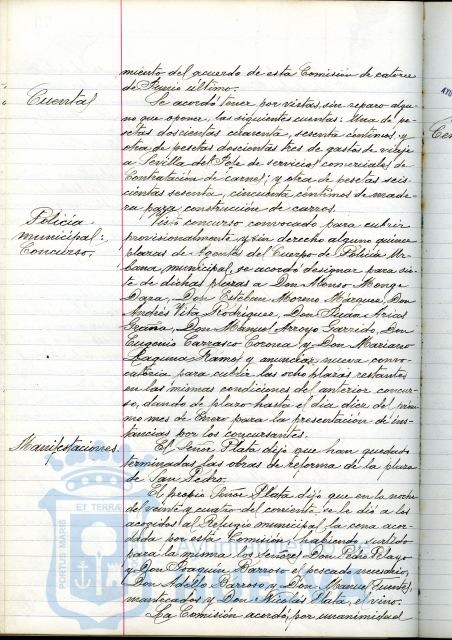 miento del acuerdo de esta Comisión de catorce
de Junio último.
Cuentas
Se acordó tener por vistas, sin reparo algu-
no que oponer, las siguientes cuentas: Una de pe-
setas doscientas cuarenta, sesenta céntimos, y
otra de pesetas doscientas tres de gastos de viaje
a Sevilla del Jefe de servicios comerciales de
Contratación de carnes; y otra de pesetas seis-
cientas sesenta, cincuenta céntimos de made-
ra para construcción de carros.
Policía
municipal:
Concurso.
Visto concurso convocado para cubrir
provisionalmente y sin derecho alguno quince
plazas de Agentes del Cuerpo de Policía Ur-
bana municipal, se acordó designar para sie-
te de dichas plazas a Don Alonso Monge
Daza, Don Esteban Moreno Márquez, Don
Andrés Vita Rodríguez, Don Juan Arias
Don Manuel Arroyo Garrido, Don
Eugenio Carrasco Coronea y Don Mariano
Laguna Ramos y anunciar nueva convo-
catoria para cubrir las ocho plazas restantes
en las mismas condiciones del anterior concur-
so, dando de plazo hasta el día diez del próxi-
mo mes de Enero para la presentación de ins-
tancias por los concursantes.
Manifestaciones.
El Señor Plata dijo que han quedado
terminadas las obras de reforma de la plaza
de San Pedro.
El propio Señor Plata dijo que en la noche
del veinte y cuatro del corriente, se le dió a los
acogidos al Refugio municipal la cena acor-
dada por esta Comisión, habiendo surtido
para la misma los señores Don Pedro Pelayo
y Don Joaquín Barroso el pescado necesario,
Don Adolfo Barroso y Don Manuel Fuentes,
mantecados y Don Nicolás Plata, el vino.
La Comisión acordó, por unanimidad
PORTUS MARIS
ET TERRAE